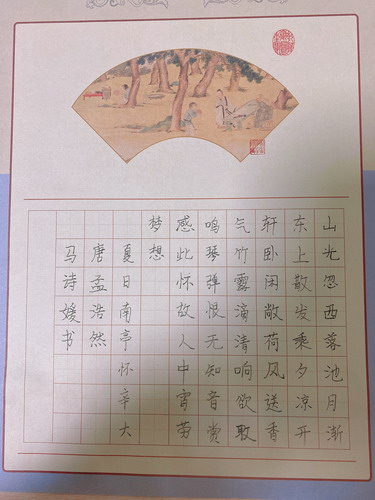 山光忽西落池月渐
东上散发乘夕凉开
轩卧闲敞荷风送香
气竹露滴清响欲取
鸣琴弹恨无知音赏
感此怀故人中宵劳
梦想
夏日南亭怀辛大
唐孟浩然
马诗媛书